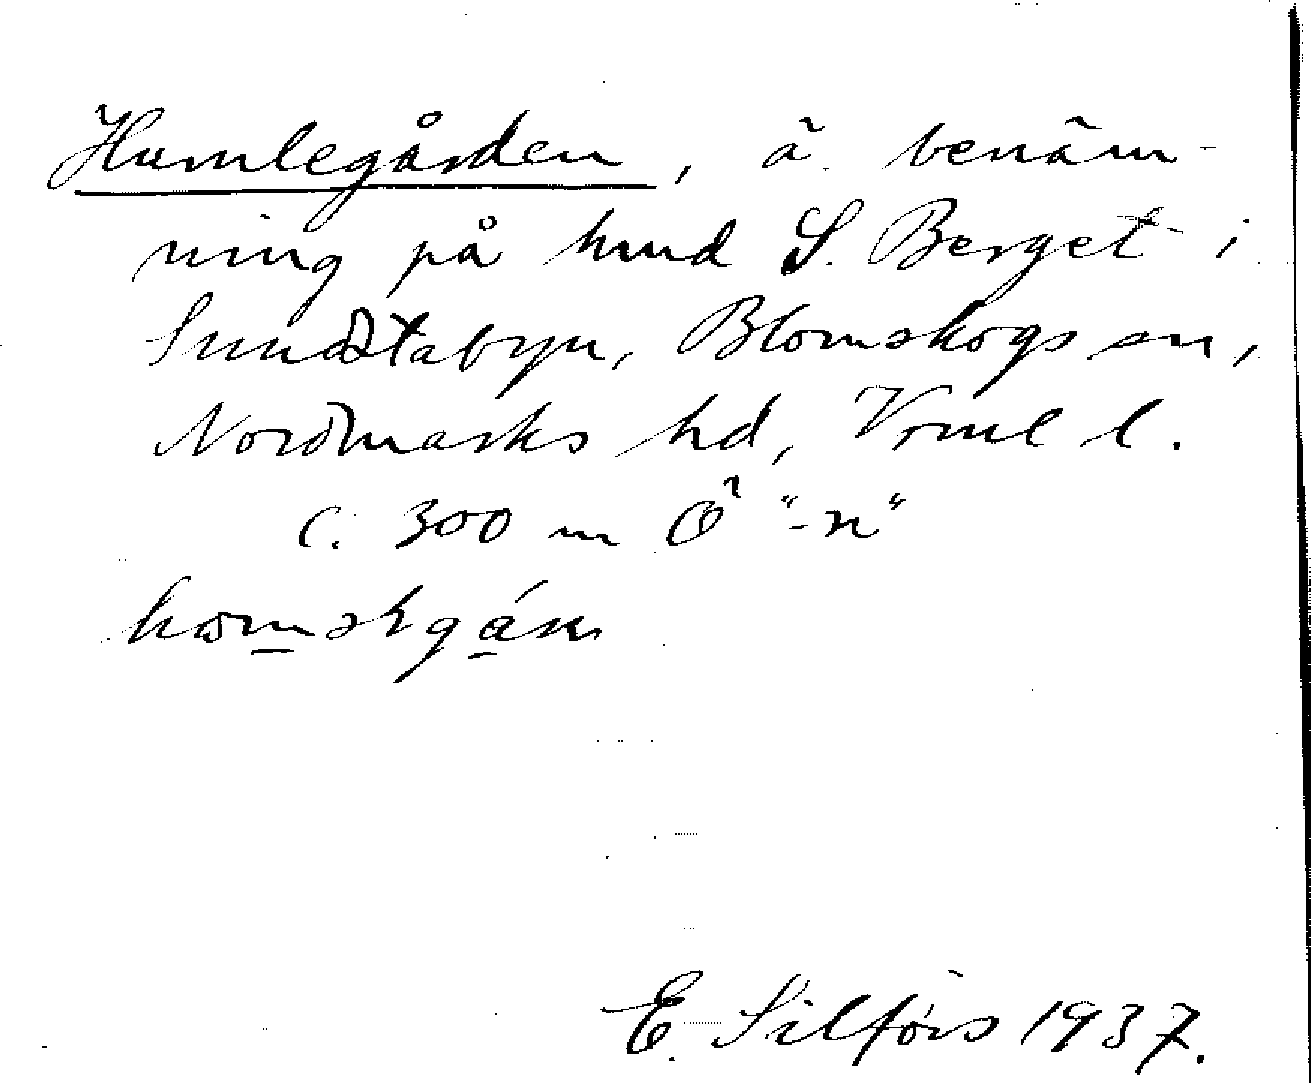 Humlegården, ä. benäm-
ning på hmd S. Berget i
Sundstabyn, Blomskogs sn,
Nordmarks hd, Vrml l.
C. 300 m Ö "-n"
E. Silfórs 1937.